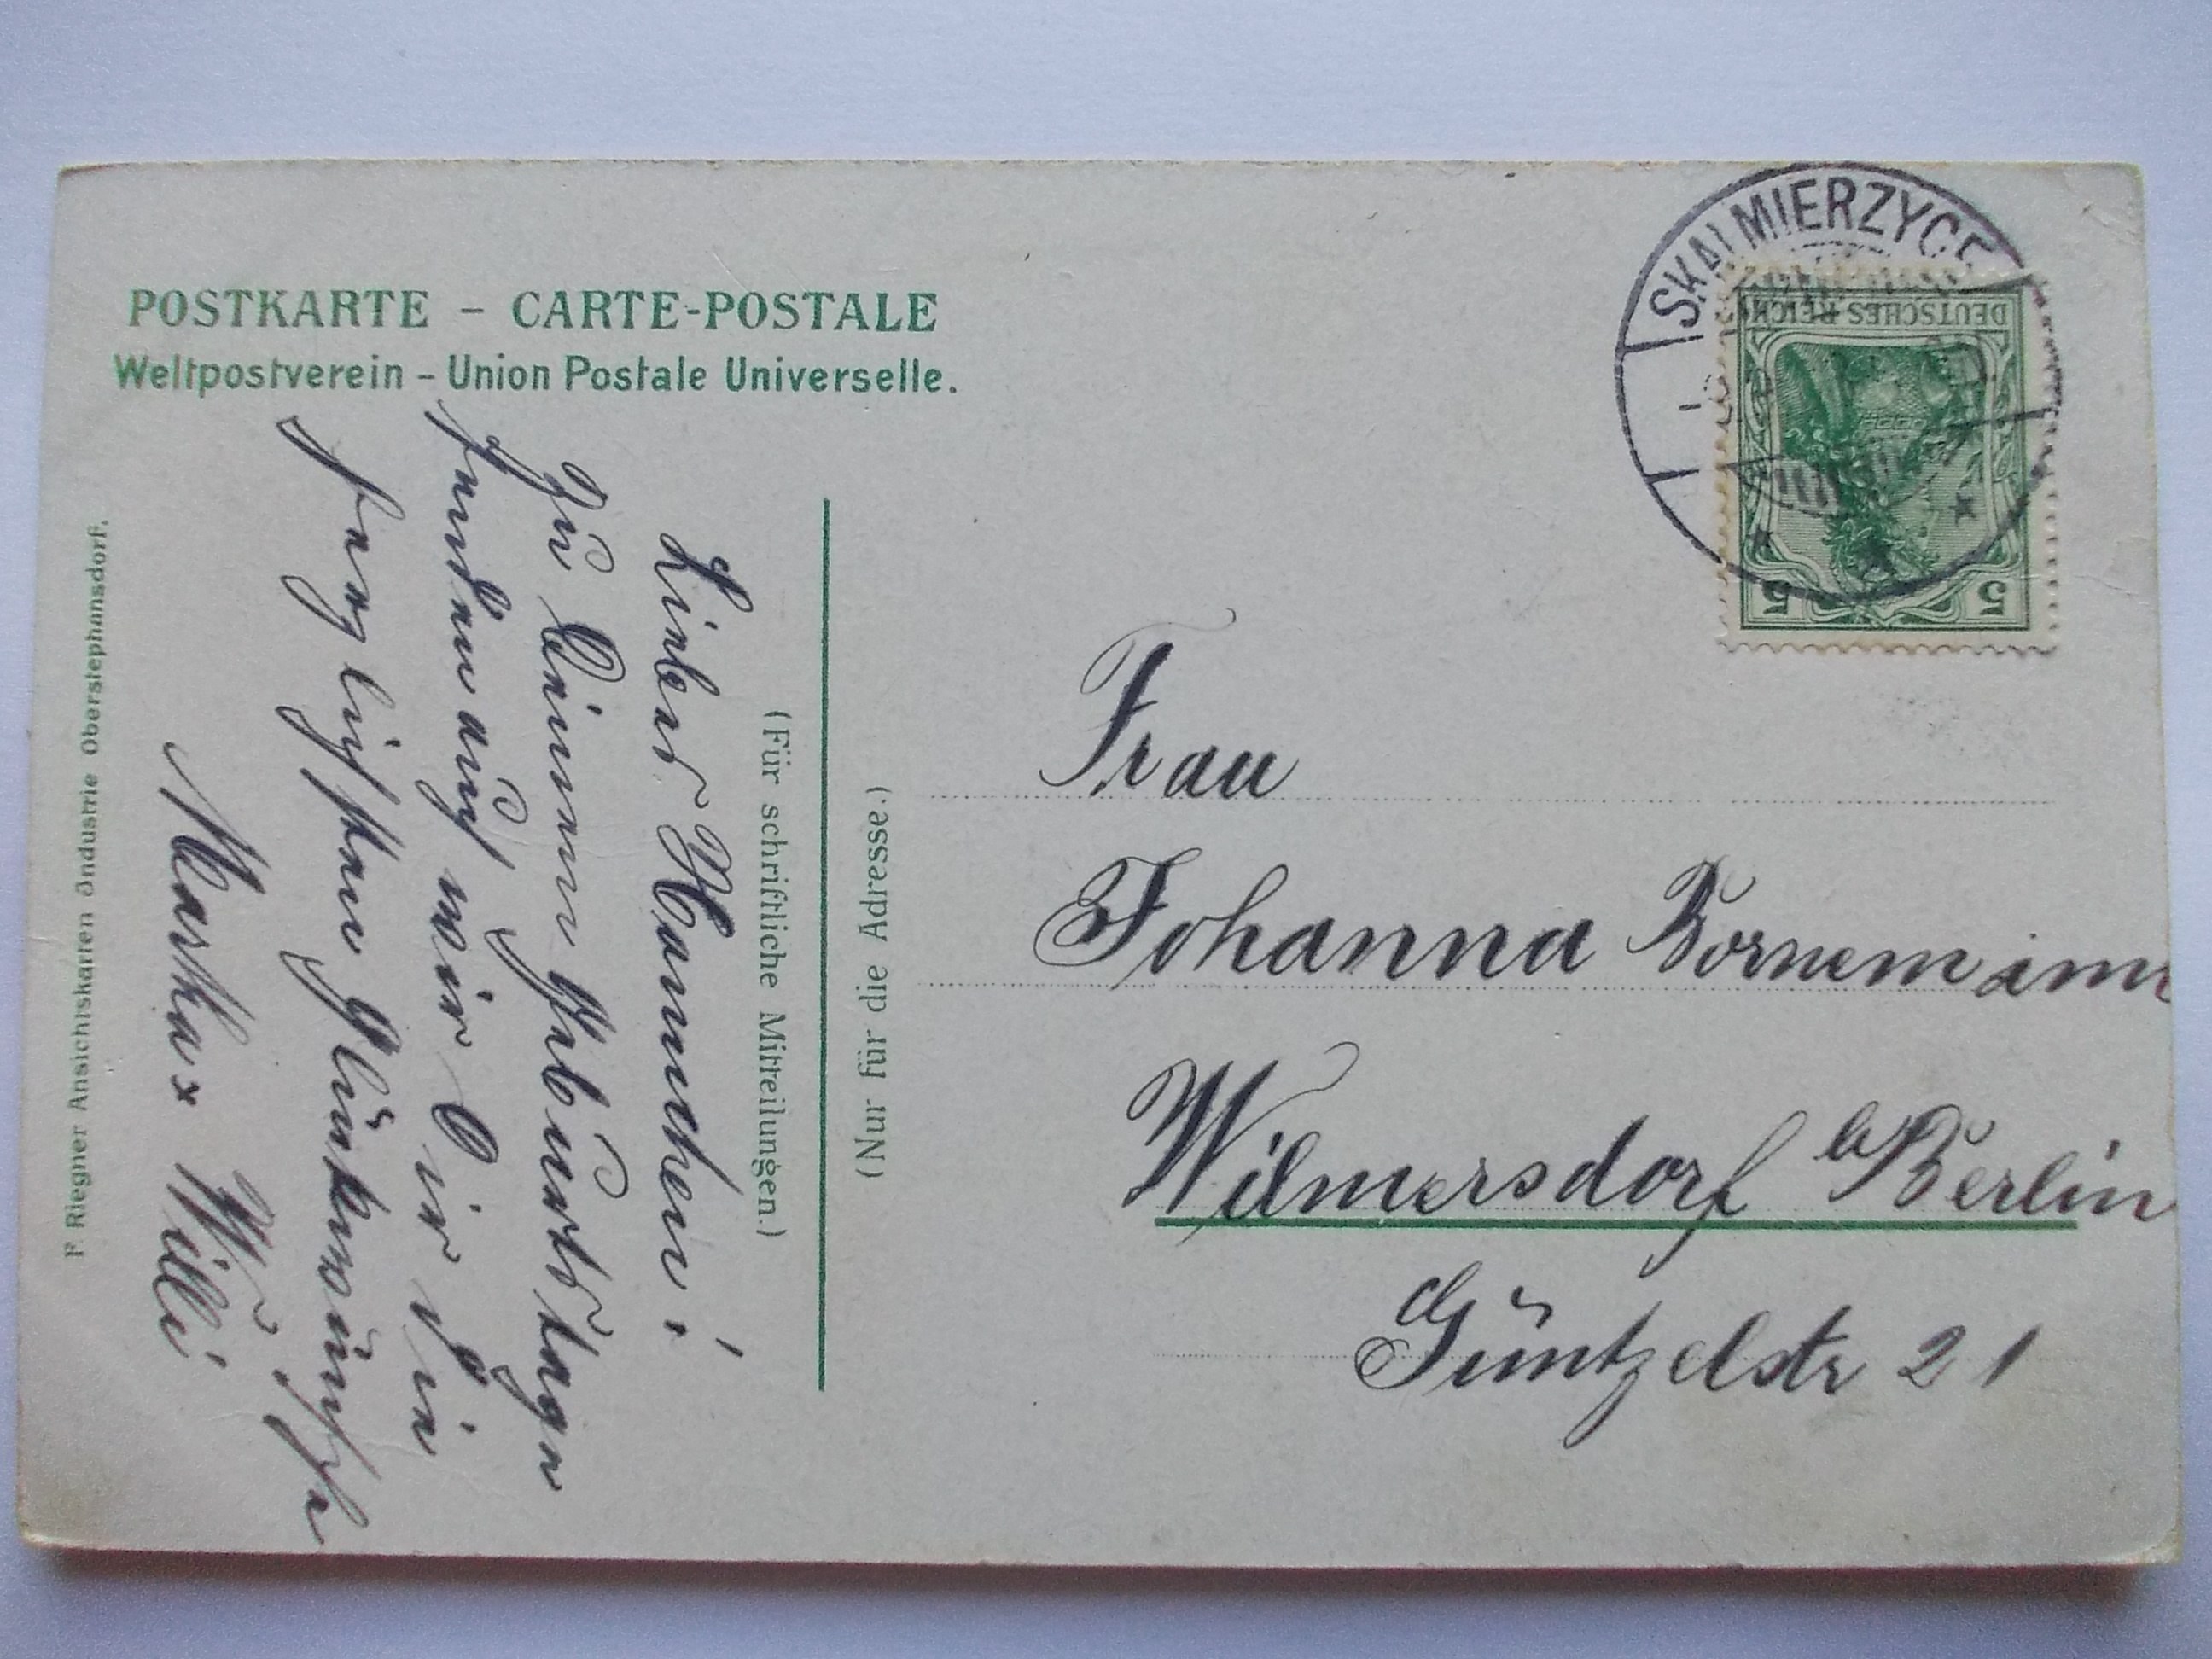 POSTKARTE – CARTE-POSTALE
Weltpostverein – Union Postale Universelle.
(Für schriftliche Mitteilungen.)
Liebes Hannchen!
Zu Deinem Geburtstage
senden auch wir Dir die
herzlichsten Glückwünsche
Willi
F. Riegner Ansichtskarten Industrie Oberstephansdorf.
(Nur für die Adresse.)
SKALMIERZYCE
DEUTSCHES REICH
5 5
Frau
Johanna Bornemann
Wilmersdorf b/Berlin
Güntzelstr 21